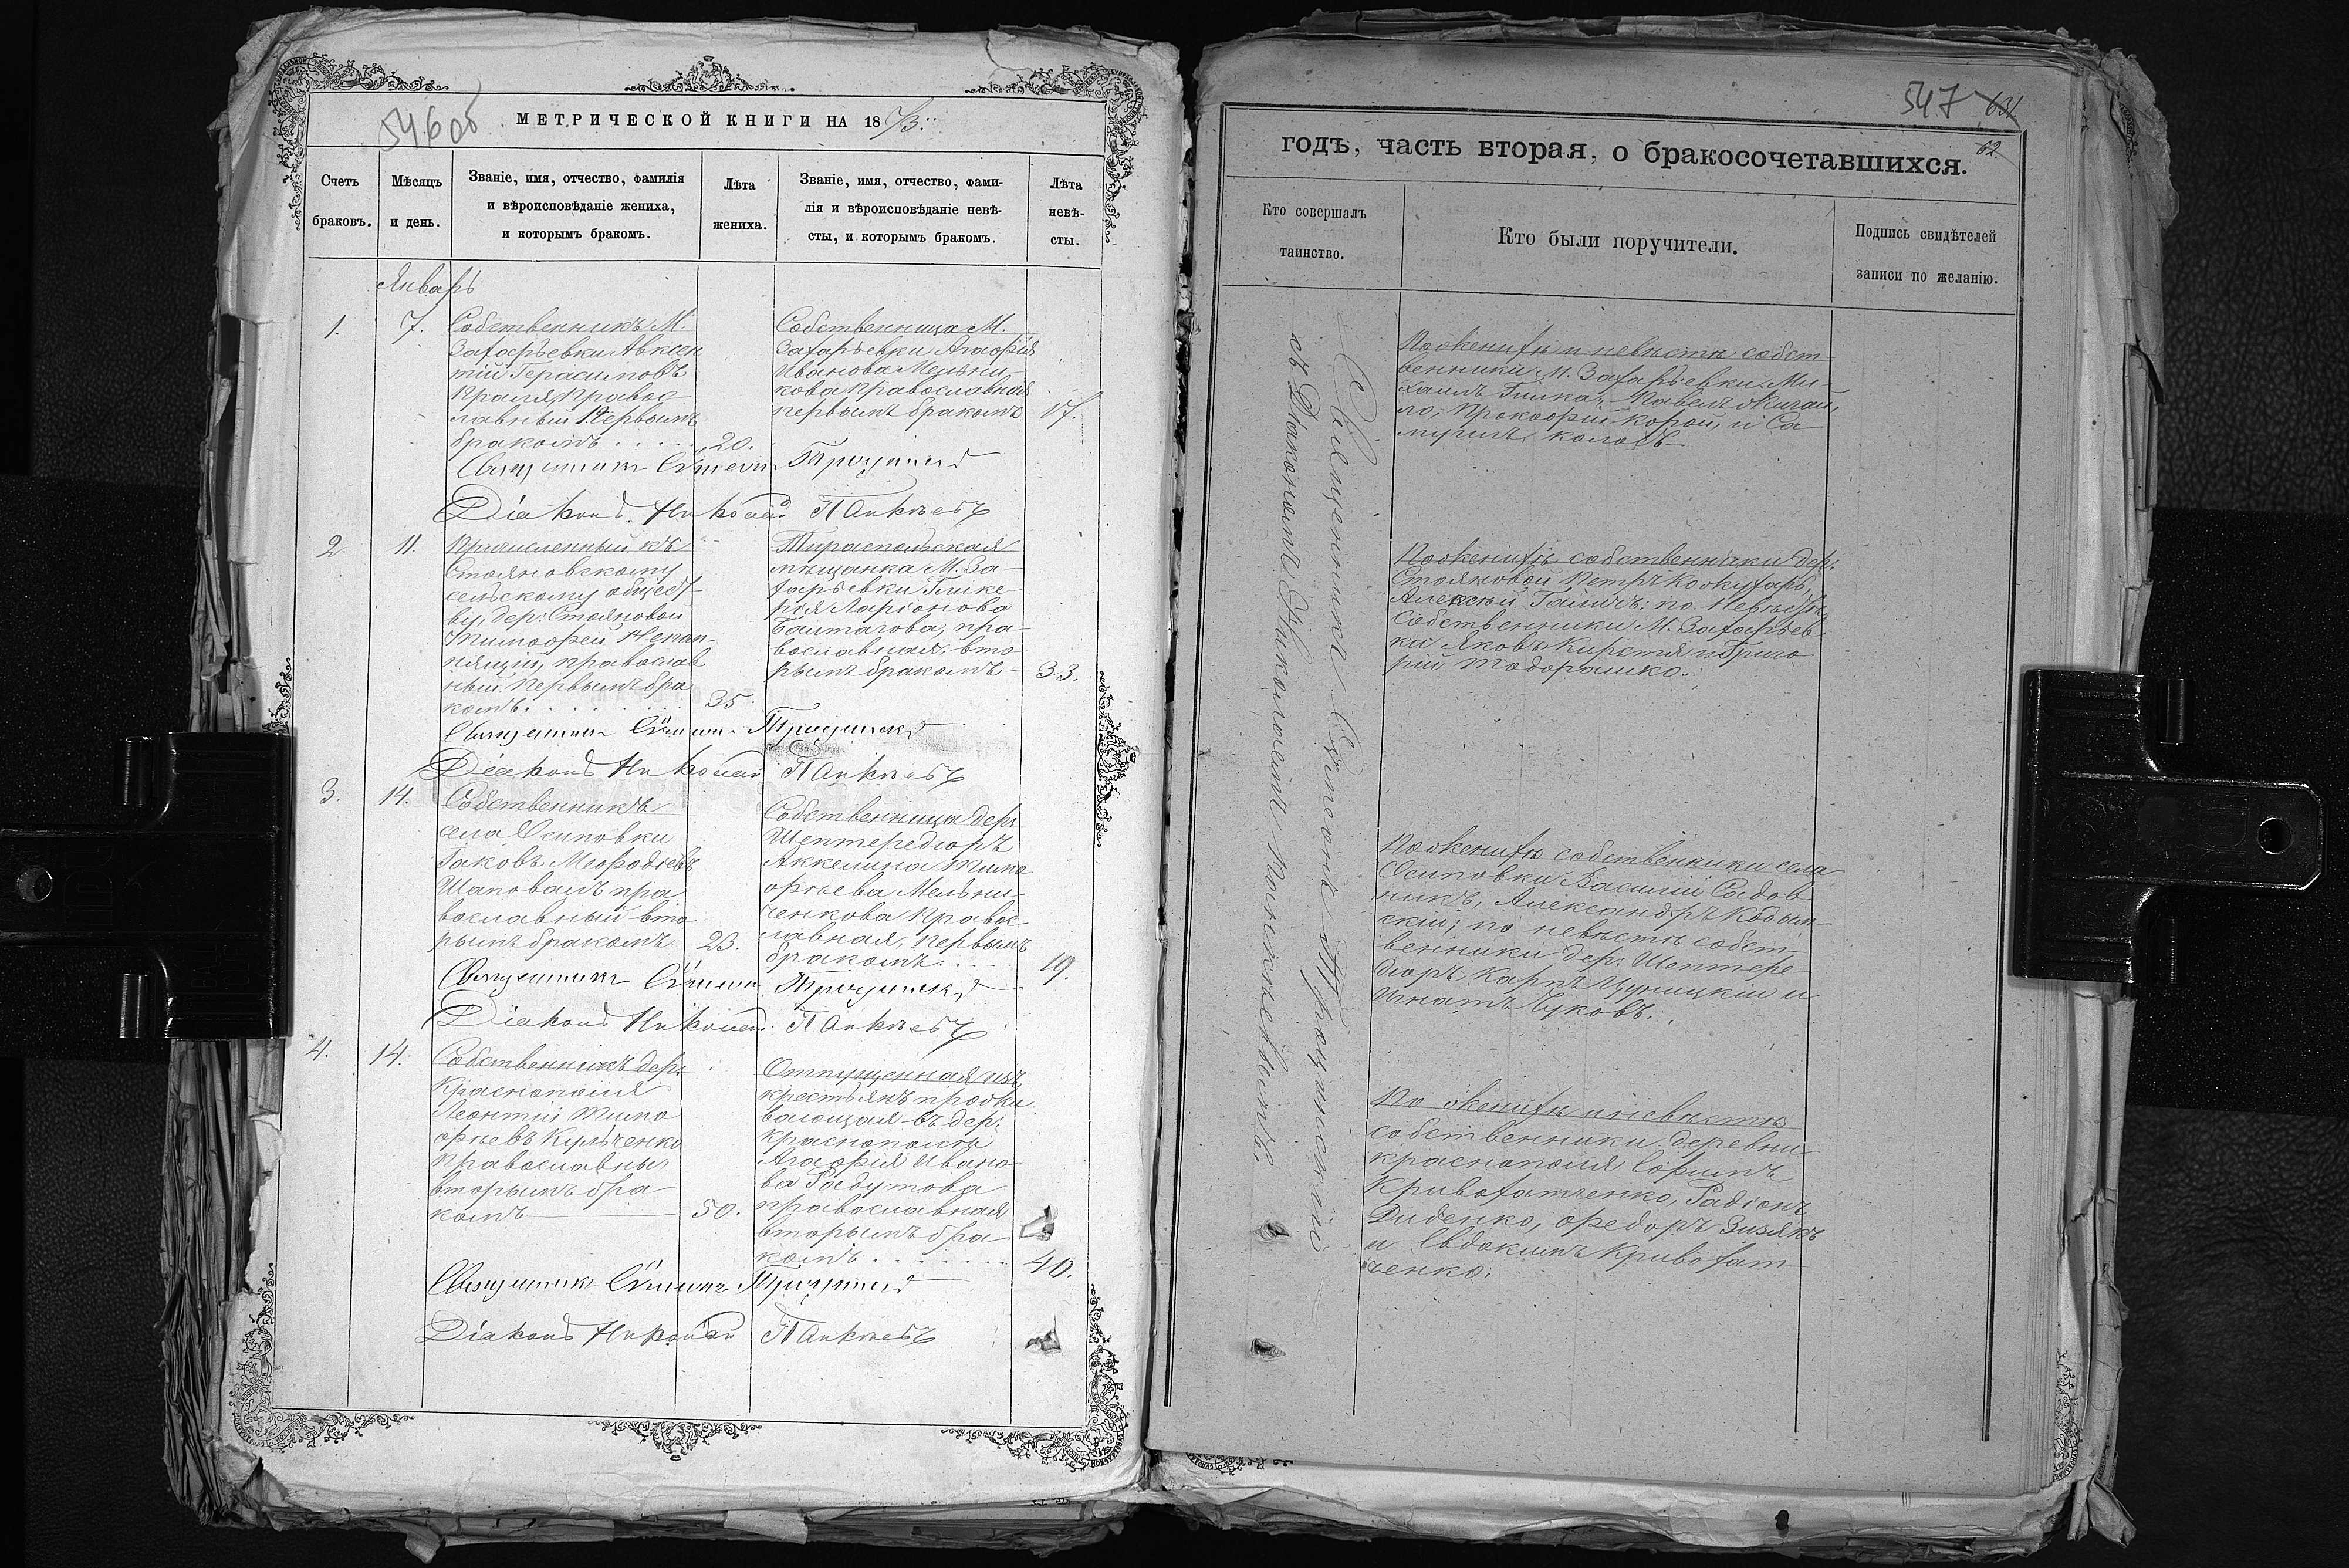 546 об
МЕТРИЧЕСКОЙ КНИГИ НА 1873:
Счетъ браковъ.
Мѣсяцъ и день.
Званіе, имя, отчество, фамилія
и вѣроисповѣданіе жениха,
и которымъ бракомъ.
Лѣта жениха.
Званіе, имя, отчество, фами-
лія и вѣроисповѣданіе невѣ-
сты, и которымъ бракомъ.
Лѣта невѣ-
сты.
Январь
1.
7.
Собственникъ М.
Захарьевки Авксен
тій Герасимовъ
Правос
лавный Первымъ
бракомъ
20.
Собственница М.
Захарьевки Агафія
Иванова Мельни
кова Православная
первымъ бракомъ
17.
Священникъ Сѵмеонъ
Діаконъ Николай
2.
11.
Причисленный къ
Стояновскому
сельскому общест
ву, дер: Стояновой
Тимофей
православ
ный Первымъ бра
комъ
35.
Тираспольская
мѣщанка М. За-
харьевки Глике
рія Ларіонова
Балтагова, пра-
вославная, вто
рымъ бракомъ
33.
Священникъ Сѵмеонъ
Діаконъ Николай
3.
14.
Собственникъ
села Осиповки
Іаковъ Меѳодіевъ
Шаповалъ пра
вославный вто
рымъ бракомъ
23.
Собственница дер:
Шептередоръ
Аккелина Тимо
фѣева Мельни-
ченкова Правос-
лавная, первымъ
бракомъ
19.
Священникъ Сѵмеонъ
Діаконъ Николай
4.
14.
Собственникъ дер:
Краснополя
Леонтій Тимо
фѣевъ Кульченко
Православны
вторымъ бра-
комъ
50.
Отпущенная изъ
крестьянъ прожи
вающая въ дер:
Краснополѣ
Агафія Ивано
ва Радутова
православная
вторымъ бра
комъ
40.
Священникъ Сѵмеонъ
Діаконъ Николай
547
62
годъ, часть вторая, о бракосочетавшихся.
Кто совершалъ
таинство.
Кто были поручители.
Подпись свидѣтелей
записи по желанію.
Священникъ Сѵмеонъ
съ Діакономъ Николаемъ
По женихѣ и невѣстѣ собст
венники М. Захарьевки Ми-
хаилъ Гилка, Павелъ
Прокофій и Са
муилъ
По женихѣ собственники дер:
Стояновой Петръ Кожухарь,
Алексѣй по Невѣстѣ
Собственники М. Захарьев
ки Яковъ Кирстя и Григо
рій Тодорашко.
По женихѣ собственники села
Осиповки Василій Садов
никъ, Александръ
скій; по невѣстѣ собст
венники дер: Шептере-
доръ Карпъ и
Игнатъ Чуковъ.
По женихѣ и невѣстѣ
собственники деревни
Краснополя
Кривохатченко, Радіонъ
Диденко, Федоръ Зизякъ
и Евдокимъ Кривохат
ченко.